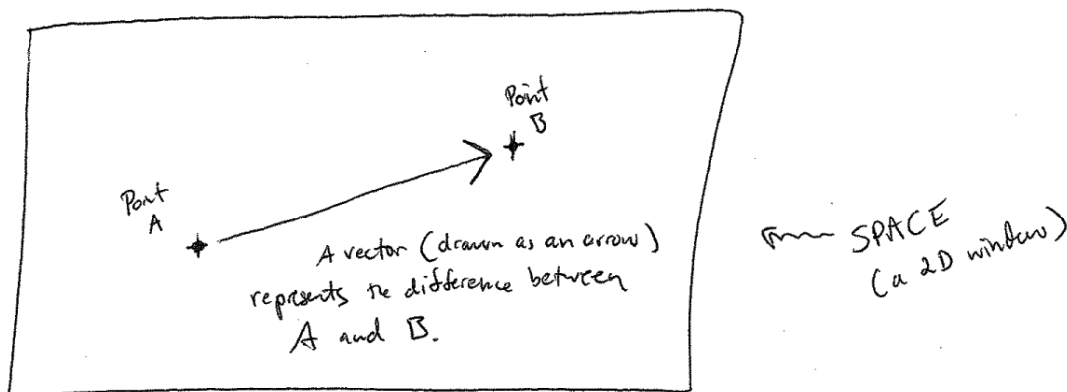 Point
B
Point
A
A vector (drawn as an arrow)
represents the difference between
A and B.
SPACE
(a 2D window)